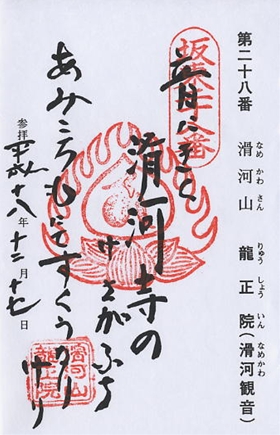 第二十八番
滑河山 龍正院(滑河観音)
なめ かわ さん りゅう しょう いん なめかわ
坂東二十八番
音にきく
滑河寺の
がふち
あみころもにてすくうなりけり
参拝 平成十八年十二月十七日
滑河山
龍正院